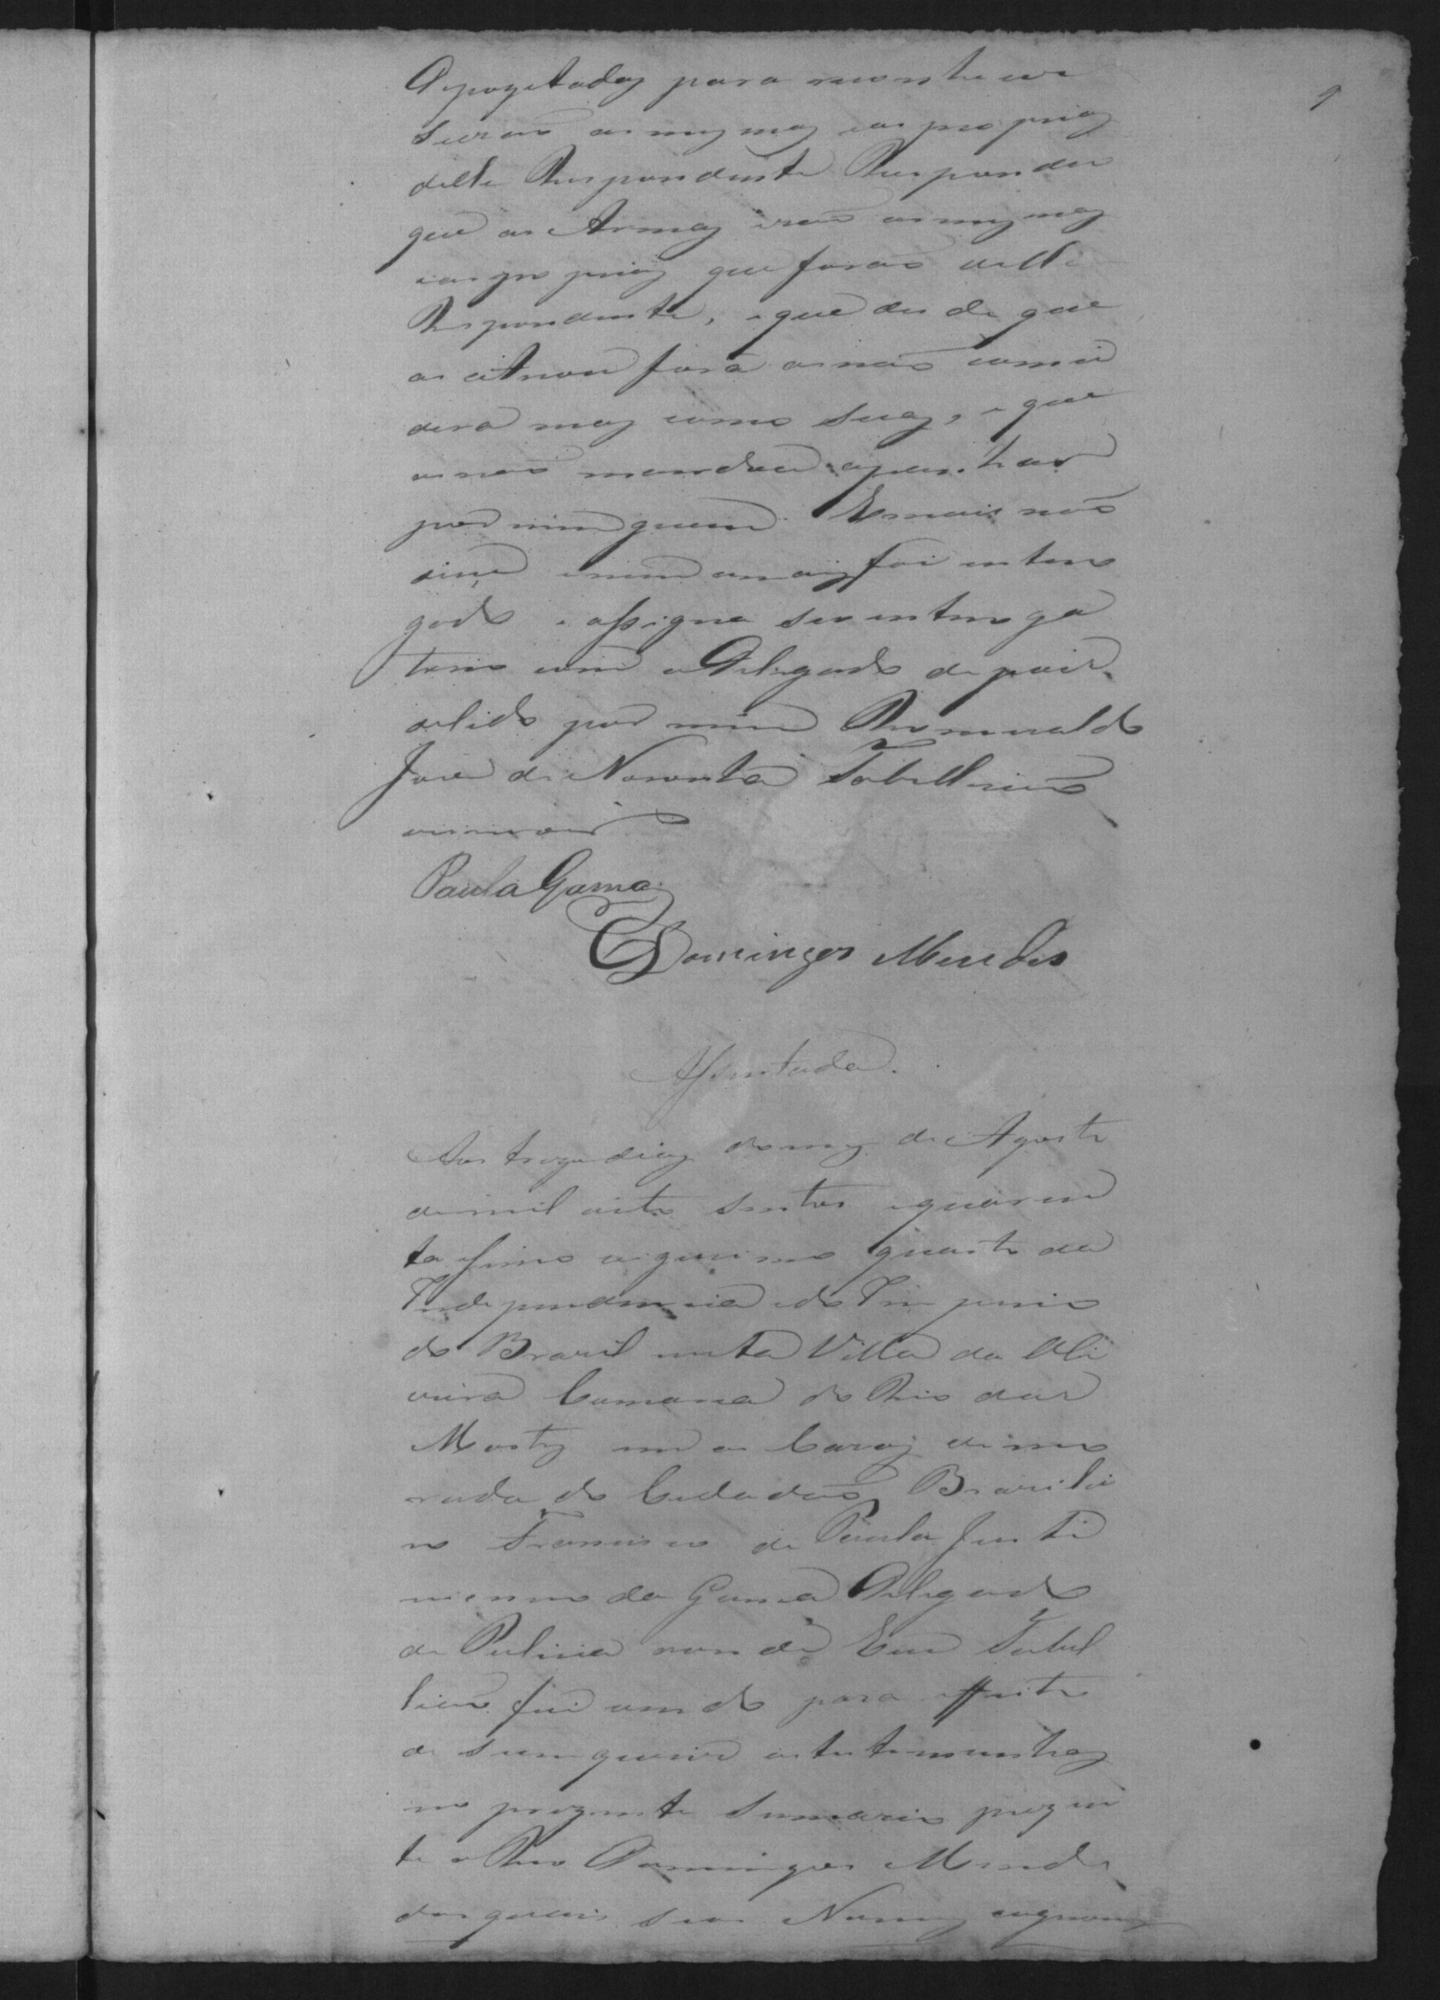 Apozitadas para reconhecer
serão as mesmas e as proprias
delle Respondente Respondeu
que as Armas erão as mesmas
e as proprias que forão delle
Respondente, e que desde que
as atirou fora as não consi
dera mais como suas, e que
as não mandou apanhar
por ninguem. E mais não
disse e nem mais foi interro
gado e assigna seu interroga
torio com o Delegado depois
de lido por mim Romualdo
José de Noronha Tabellião
escrevi
Paula Gama
Domingos Mendes
Assentada.
Aos treze dias do mez de Agosto
de mil oito sentos e quaren
ta e sinco vigesimo quarto da
Independencia e do Imperio
do Brazil nesta Villa da Oli
veira Comarca do Rio das
Mortes em as Cazas de mo
rada do Cidadão Brazilei
ro Francisco de Paula Justi
niano da Gama Delegado
de Policia onde Eu Tabel
lião fui vindo para effeito
de se inquirir as testemunhas
no prezente Sumario prezen
te o Reo Domingos Mendes
das quaes seus Nomes cognomes